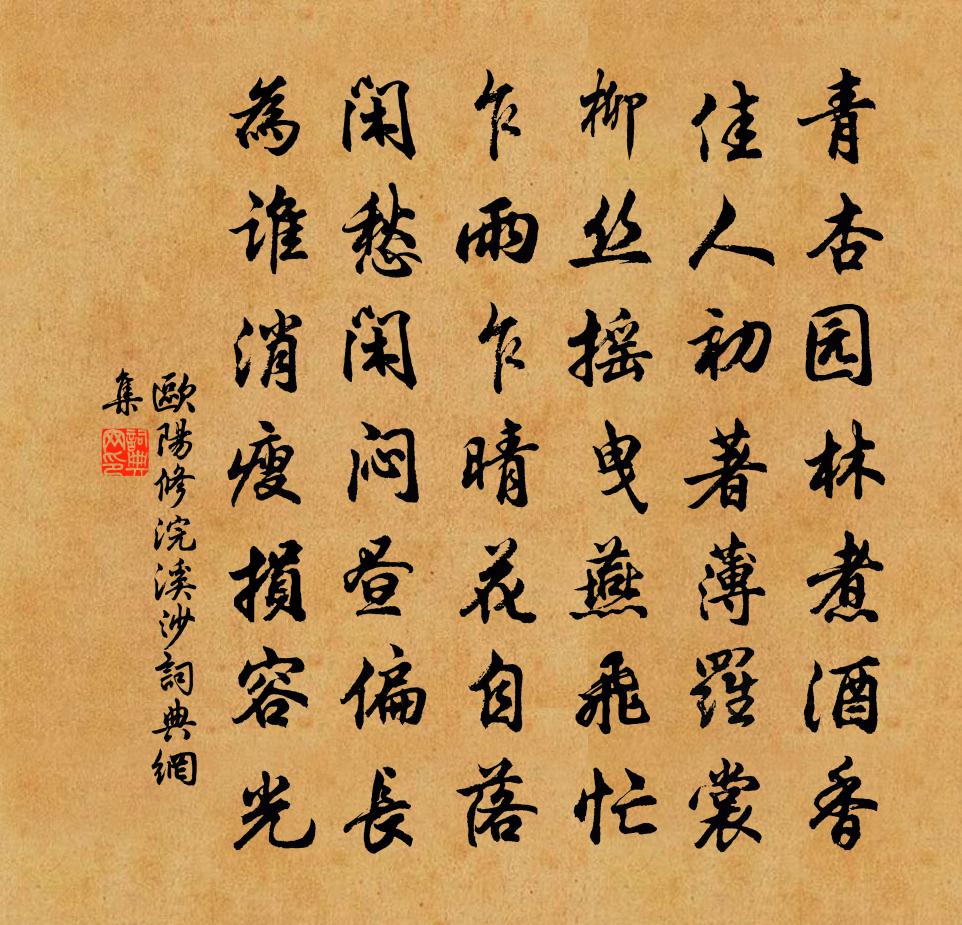 青杏园林煮酒香
佳人初著薄羅裳
柳丝摇曳燕飛忙
乍雨乍晴花自落
闲愁闲闷昼偏長
為谁消瘦損容光
歐陽修浣溪沙詞典網
集
詞典网印